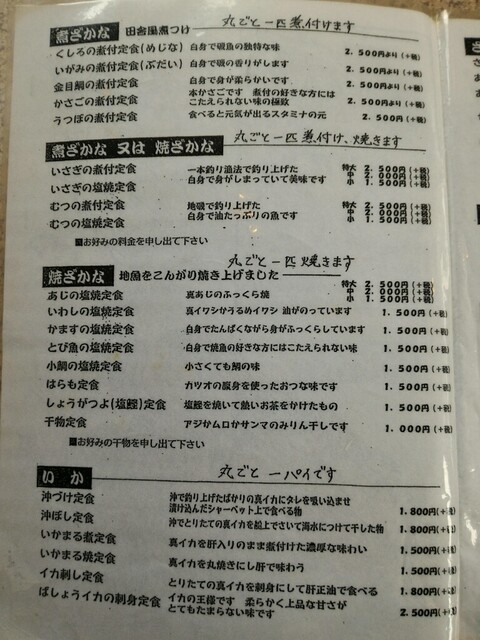 煮ざかな 田舎風煮つけ 丸ごと一匹煮付けます
くしろの煮付定食(めじな) 白身で磯魚の独特な味 2.500円より(+税)
いがみの煮付定食(ぶだい) 白身で磯の香りがします 2.500円より(+税)
金目鯛の煮付定食 白身で身が柔らかいです 2.500円より(+税)
かさごの煮付定食 本かさごです 煮付の好きな方には
こたえられない味の極致 2.500円より(+税)
うつぼの煮付定食 食べると元気が出るスタミナの元 2.500円(+税)
煮ざかな 又は 焼ざかな 丸ごと一匹煮付け、焼きます
いさぎの煮付定食 一本釣り漁法で釣り上げた 特大 2.500円(+税)
白身で身がしまっていて美味です 中 2.000円(+税)
いさぎの塩焼定食 小 1.500円(+税)
むつの煮付定食 地磯で釣り上げた 特大 2.500円(+税)
白身で油たっぷりの魚です 中 2.000円(+税)
むつの塩焼定食 小 1.500円(+税)
■お好みの料金を申し出て下さい
焼ざかな 地魚をこんがり焼き上げました 丸ごと一匹焼きます
あじの塩焼定食 真あじのふっくら焼 特大 2.500円(+税)
中 2.000円(+税)
小 1.500円(+税)
いわしの塩焼定食 真イワシかうるめイワシ 油がのっています 1.500円(+税)
かますの塩焼定食 白身でたんぱくながら身がふっくらしています 1.500円(+税)
とび魚の塩焼定食 白身で焼魚の好きな方にはこたえられない味 1.500円(+税)
小鯛の塩焼定食 小さくても鯛の味 1.500円(+税)
はらも定食 カツオの腹身を使ったおつな味です 1.500円(+税)
しょうがつよ(塩鰹)定食 塩鰹を焼いて熱いお茶をかけたもの 1.500円(+税)
干物定食 アジかムロかサンマのみりん干しです 1.000円(+税)
■お好みの干物を申し出て下さい
いか 丸ごと一パイです
沖づけ定食 沖で釣り上げたばかりの真イカにタレを吸い込ませ
漬け込んだシャーベット上で食べる物 1.800円(+税)
沖ぼし定食 沖でとりたての真イカを船上でさいて海水につけて干した物 1.800円(+税)
いかまる煮定食 真イカを肝入りのまま煮付けた濃厚な味わい 1.500円(+税)
いかまる焼定食 真イカを丸焼きにし肝で味わう 1.500円(+税)
イカ刺し定食 とりたての真イカを刺身にして肝正油で食べる 1.800円(+税)
ばしょうイカの刺身定食 イカの王様です 柔らかく上品な甘さが
とてもたまらない味です 2.500円(+税)